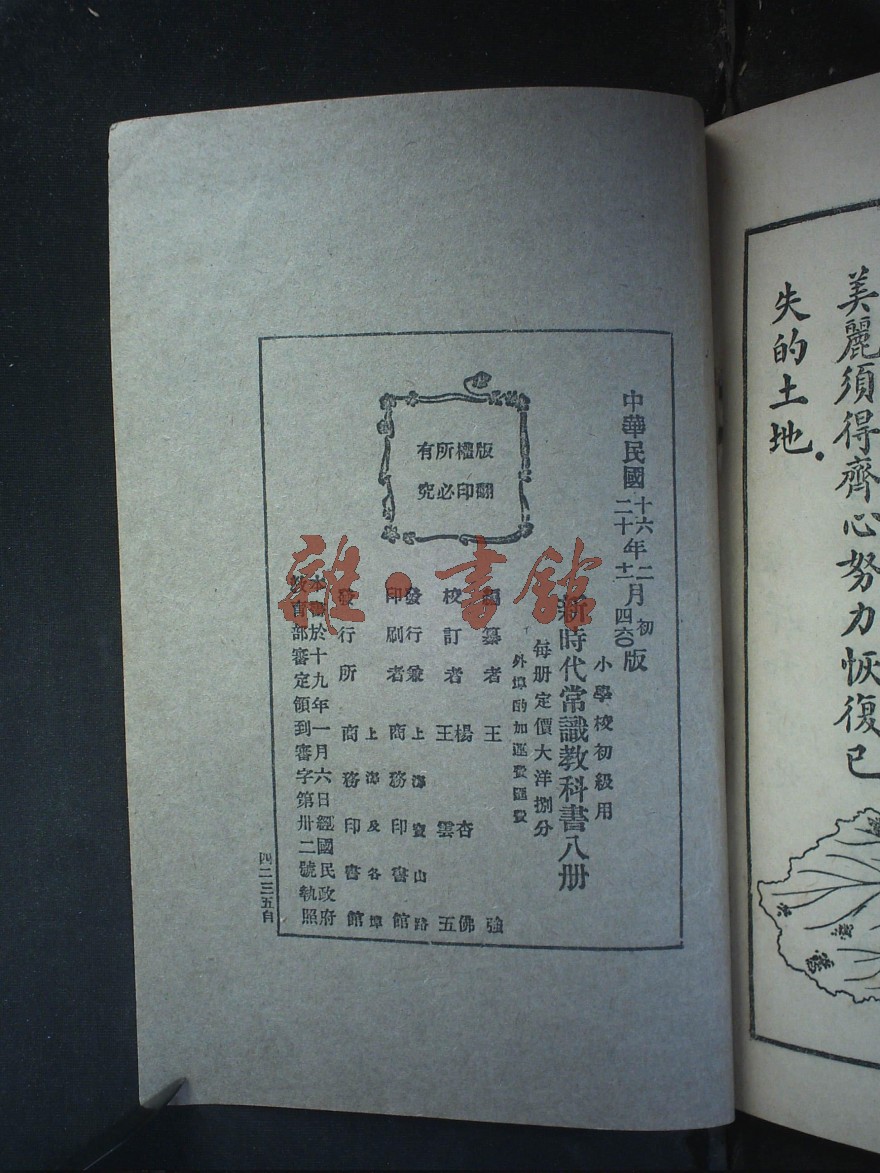 美麗須得齊心努力恢復已
失的土地．
中華民國
十六年二月初版
二十年十二月四六〇版
小學校初級用
新時代常識教科書八册
每册定價大洋捌分
外埠酌加運費匯費
版權所有
翻印必究
編纂者 王強
校訂者 楊杏佛 王雲五
發行兼印刷者 上海寶山路 商務印書館
發行所 上海及各埠 商務印書館
本書於十九年一月六日經國民政府
教育部審定領到審字第卅二號執照
四二三五自
雜·書館